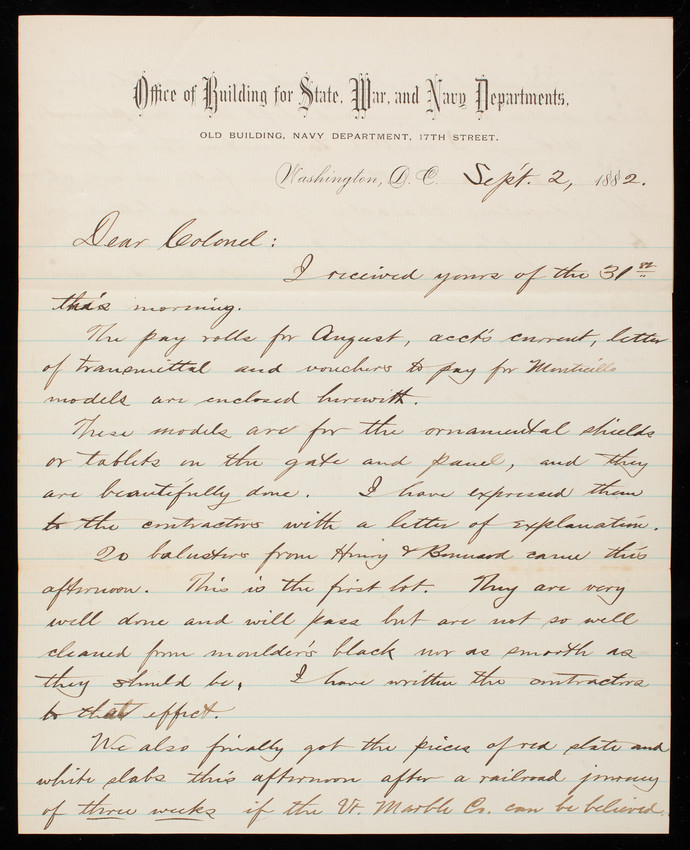 Office of Building for State, War, and Navy Departments,
OLD BUILDING, NAVY DEPARTMENT, 17TH STREET.
Washington, D. C. Sept. 2, 1882.
Dear Colonel:
I received yours of the 31st
this morning.
The pay rolls for August, acct's current, letter
of transmittal and vouchers to pay for Monticello
models are enclosed herewith.
These models are for the ornamental shields
or tablets on the gate and panel, and they
are beautifully done. I have expressed them
to the contractors with a letter of explanation.
20 balusters from Henry & Bonnard came this
afternoon. This is the first lot. They are very
well done and will pass but are not so well
cleaned from moulder's black nor as smooth as
they should be. I have written the contractors
to that effect.
We also finally got the pieces of red slate and
white slabs this afternoon after a railroad journey
of three weeks if the Vt. Marble Co. can be believed.